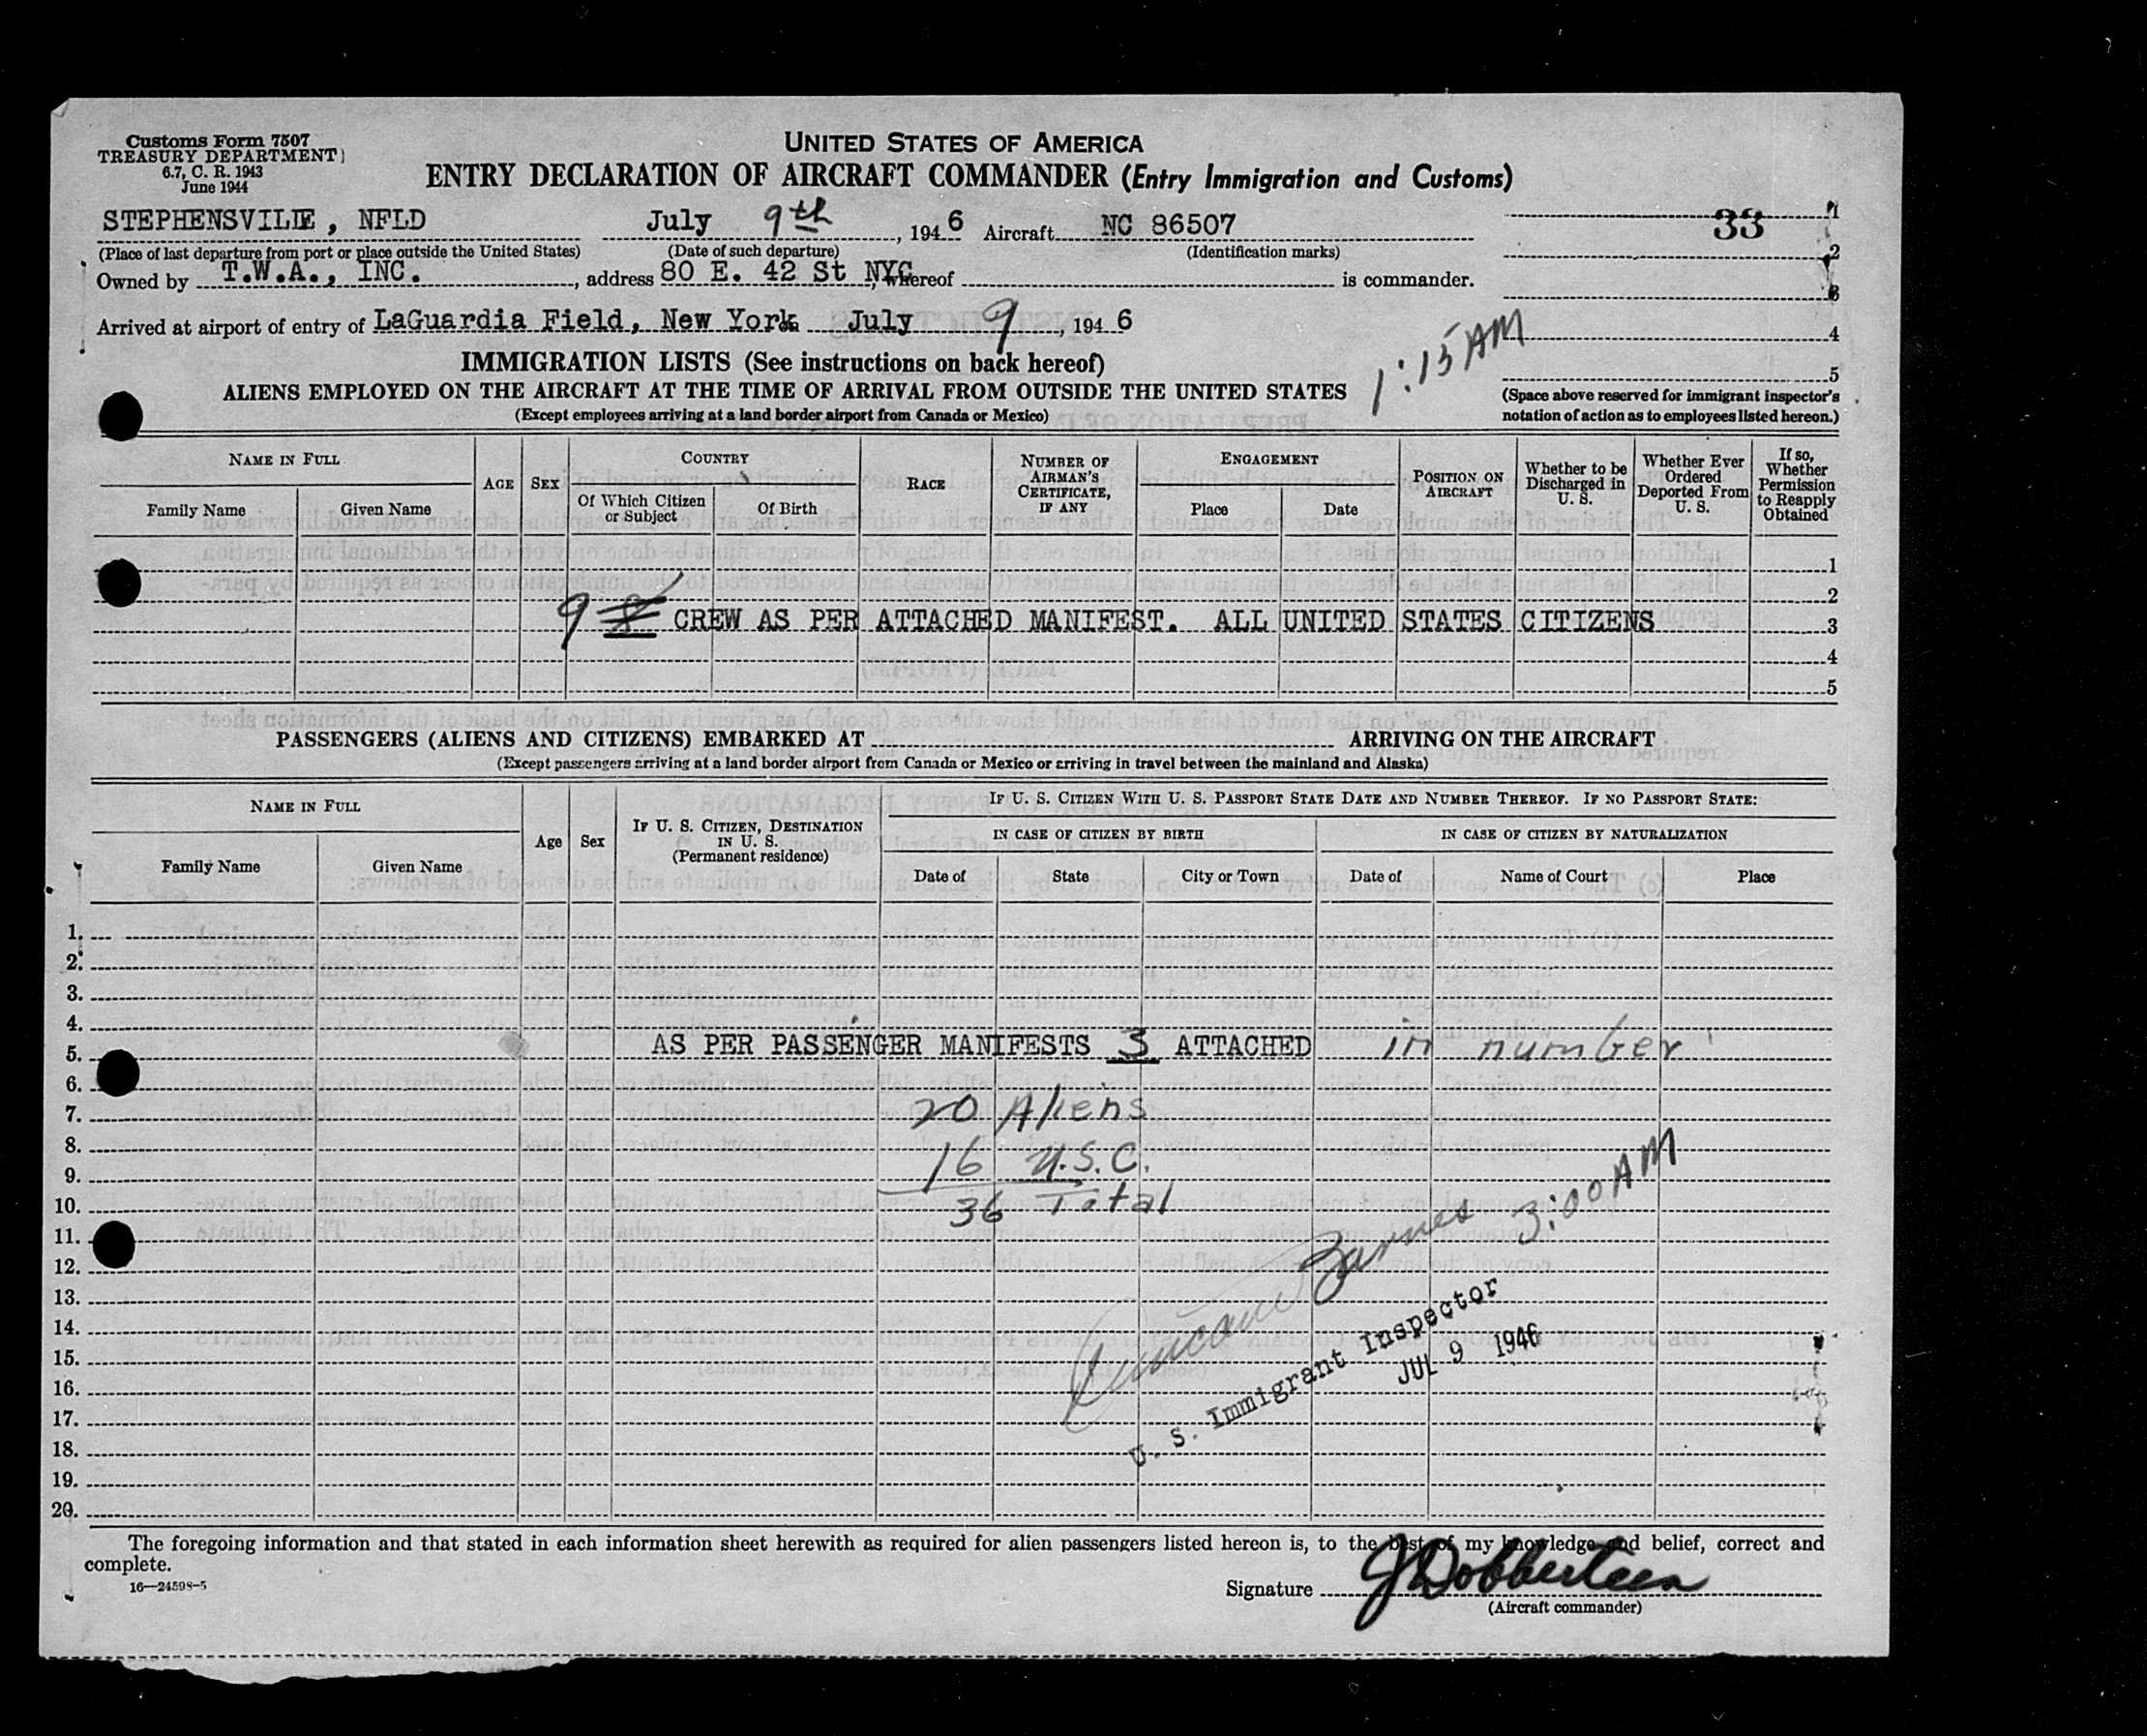 Customs Form 7507
TREASURY DEPARTMENT
6.7, C. R. 1943
June 1944
UNITED STATES OF AMERICA
ENTRY DECLARATION OF AIRCRAFT COMMANDER (Entry Immigration and Customs)
STEPHENSVILLE, NFLD July 9th, 1946 Aircraft NC 86507
33 1
(Place of last departure from port or place outside the United States) (Date of such departure) (Identification marks)
2
Owned by T.W.A., INC., address 80 E. 42 St NYC, whereof is commander.
3
Arrived at airport of entry of LaGuardia Field, New York July 9, 1946
1:15 AM
4
IMMIGRATION LISTS (See instructions on back hereof)
5
ALIENS EMPLOYED ON THE AIRCRAFT AT THE TIME OF ARRIVAL FROM OUTSIDE THE UNITED STATES
(Except employees arriving at a land border airport from Canada or Mexico)
(Space above reserved for immigrant inspector's
notation of action as to employees listed hereon.)
NAME IN FULL
Family Name Given Name
AGE SEX
COUNTRY
Of Which Citizen
or Subject
Of Birth
RACE
NUMBER OF
AIRMAN'S
CERTIFICATE,
IF ANY
ENGAGEMENT
Place Date
POSITION ON
AIRCRAFT
Whether to be
Discharged in
U. S.
Whether Ever
Ordered
Deported From
U. S.
If so,
Whether
Permission
to Reapply
Obtained
1
2
9 CREW AS PER ATTACHED MANIFEST. ALL UNITED STATES CITIZENS 3
4
5
PASSENGERS (ALIENS AND CITIZENS) EMBARKED AT ARRIVING ON THE AIRCRAFT
(Except passengers arriving at a land border airport from Canada or Mexico or arriving in travel between the mainland and Alaska)
NAME IN FULL
Family Name Given Name
Age Sex
IF U. S. CITIZEN, DESTINATION
IN U. S.
(Permanent residence)
IF U. S. CITIZEN WITH U. S. PASSPORT STATE DATE AND NUMBER THEREOF. IF NO PASSPORT STATE:
IN CASE OF CITIZEN BY BIRTH IN CASE OF CITIZEN BY NATURALIZATION
Date of State City or Town Date of Name of Court Place
1.
2.
3.
4.
5. AS PER PASSENGER MANIFESTS 3 ATTACHED in number
6.
7. 20 Aliens
8.
9. 16 U.S.C.
10. 36 Total
11. Duncan Barnes 3:00 AM
12.
13.
14. U. S. Immigrant Inspector
15. JUL 9 1946
16.
17.
18.
19.
20.
The foregoing information and that stated in each information sheet herewith as required for alien passengers listed hereon is, to the best of my knowledge and belief, correct and
complete.
16—24598-5
Signature J Dobberteen
(Aircraft commander)